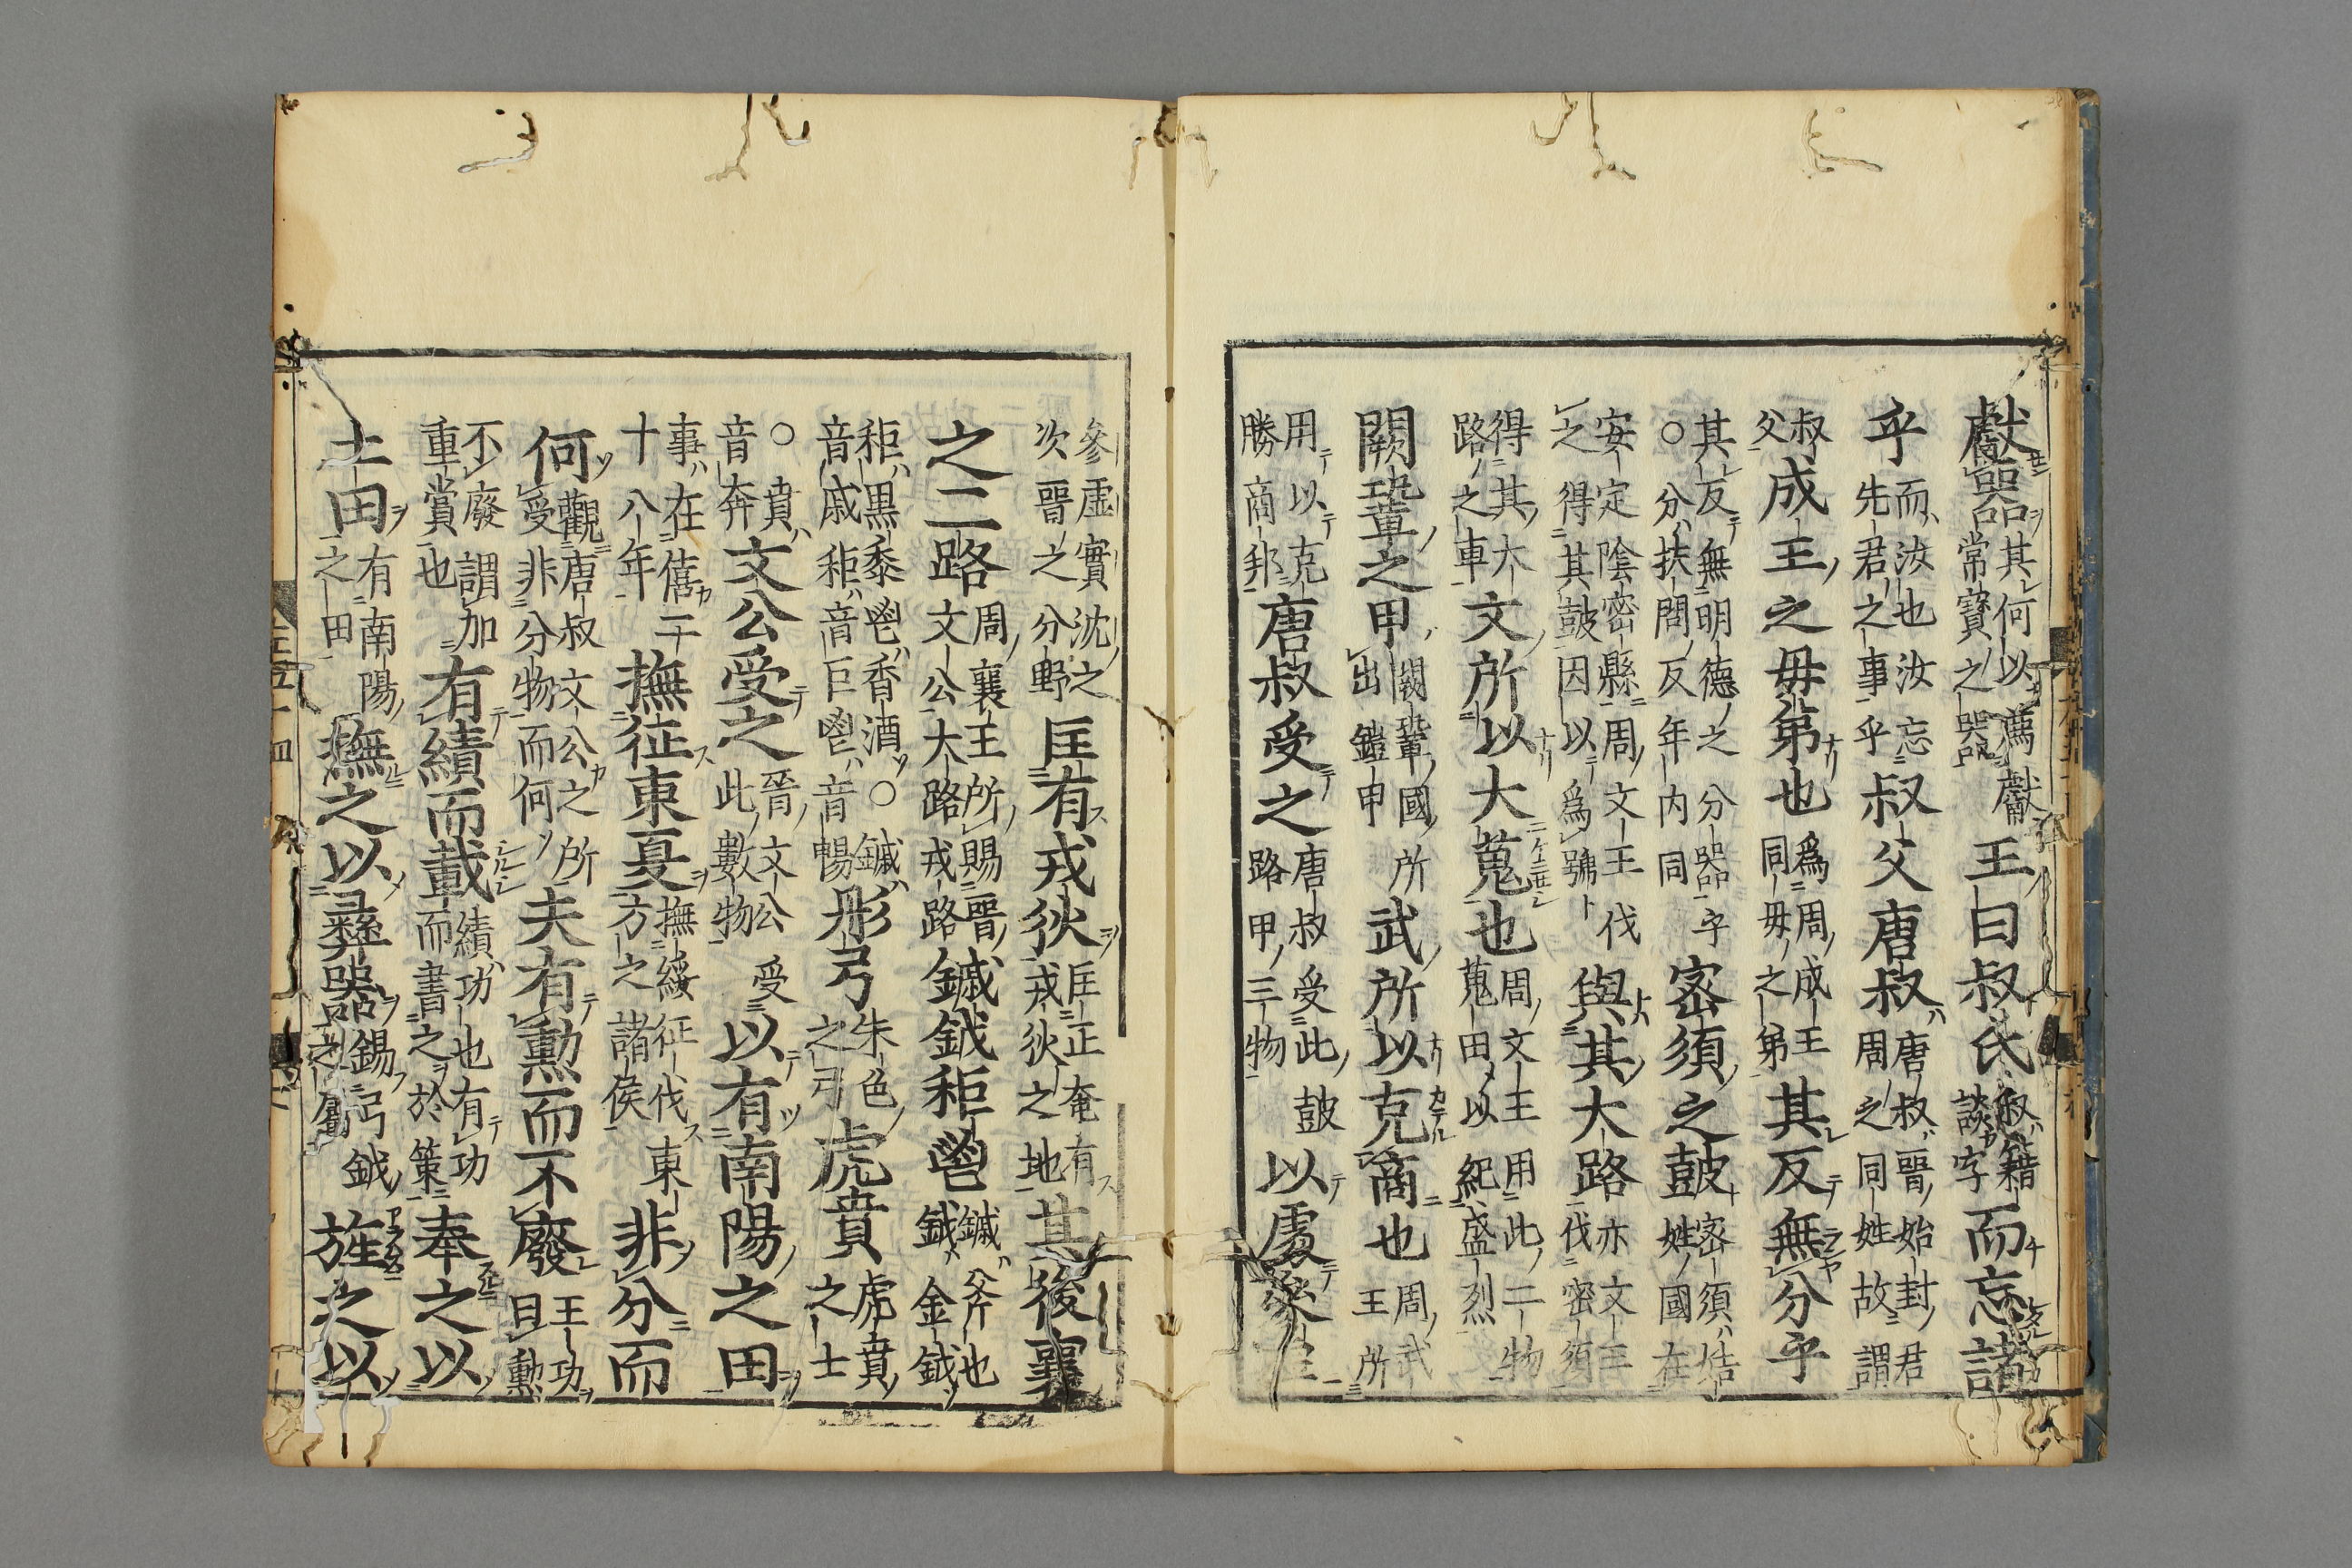 獻器其何以薦獻常寶之器王曰叔氏叔籍談字而忘諸
乎而汝也汝忘先君之事乎叔父唐叔唐叔晉始封君周之同姓故謂
叔父成王之毋弟也爲周成王同毋之弟其反無分乎
其反無明德之分器乎○分扶問反年内同密須之鼓密須姞姓國在
安定陰密縣周文王伐之得其鼓因以爲號與其大路亦文王伐密須
得其大路之車文所以大蒐也周文王用此二物蒐田以紀盛烈
闕鞏之甲闕鞏國所出鎧甲武所以克商也周武王所
用以克勝商邦唐叔受之唐叔受此鼓路甲三物以處參虛
參虛實沈之次晉之分野匡有戎狄匡正奄有戎狄之地其後襄
之二路周襄王所賜晉文公大路戎路鏚鉞秬鬯鏚斧也鉞金鉞
秬黑黍鬯香酒○鏚音戚秬音巨鬯音暢彤弓朱色之弓虎賁虎賁之士
○賁音奔文公受之晉文公受此數物以有南陽之田
事在僖二十八年撫征東夏撫綏征伐東方之諸侯非分而
何觀唐叔文公之所受非分物而何夫有勳而不廢王功曰勳
不廢謂加重賞也有績而載績功也有功而書之於策奉之以
土田有南陽之田撫之以彝器錫弓鉞之屬旌之以